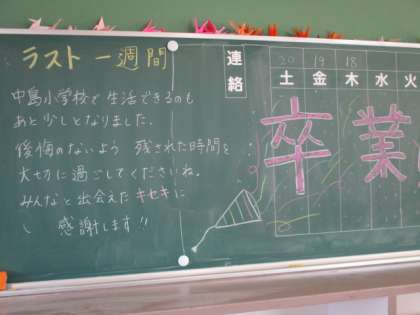 ラスト一週間
中島小学校で生活できるのも
あと少しとなりました.
後悔のないよう 残された時間を
大切に過ごしてくださいね.
みんなと出会えたキセキに
感謝します!!
連絡
20 19 18
土 金 木 水 火
卒業